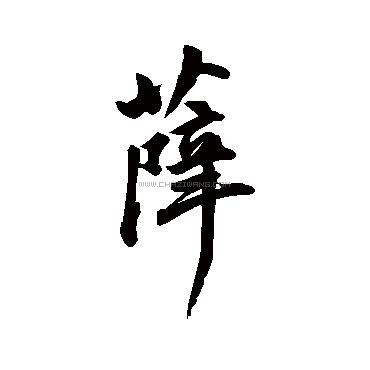 薛
WWW.CHAZIWANG.COM